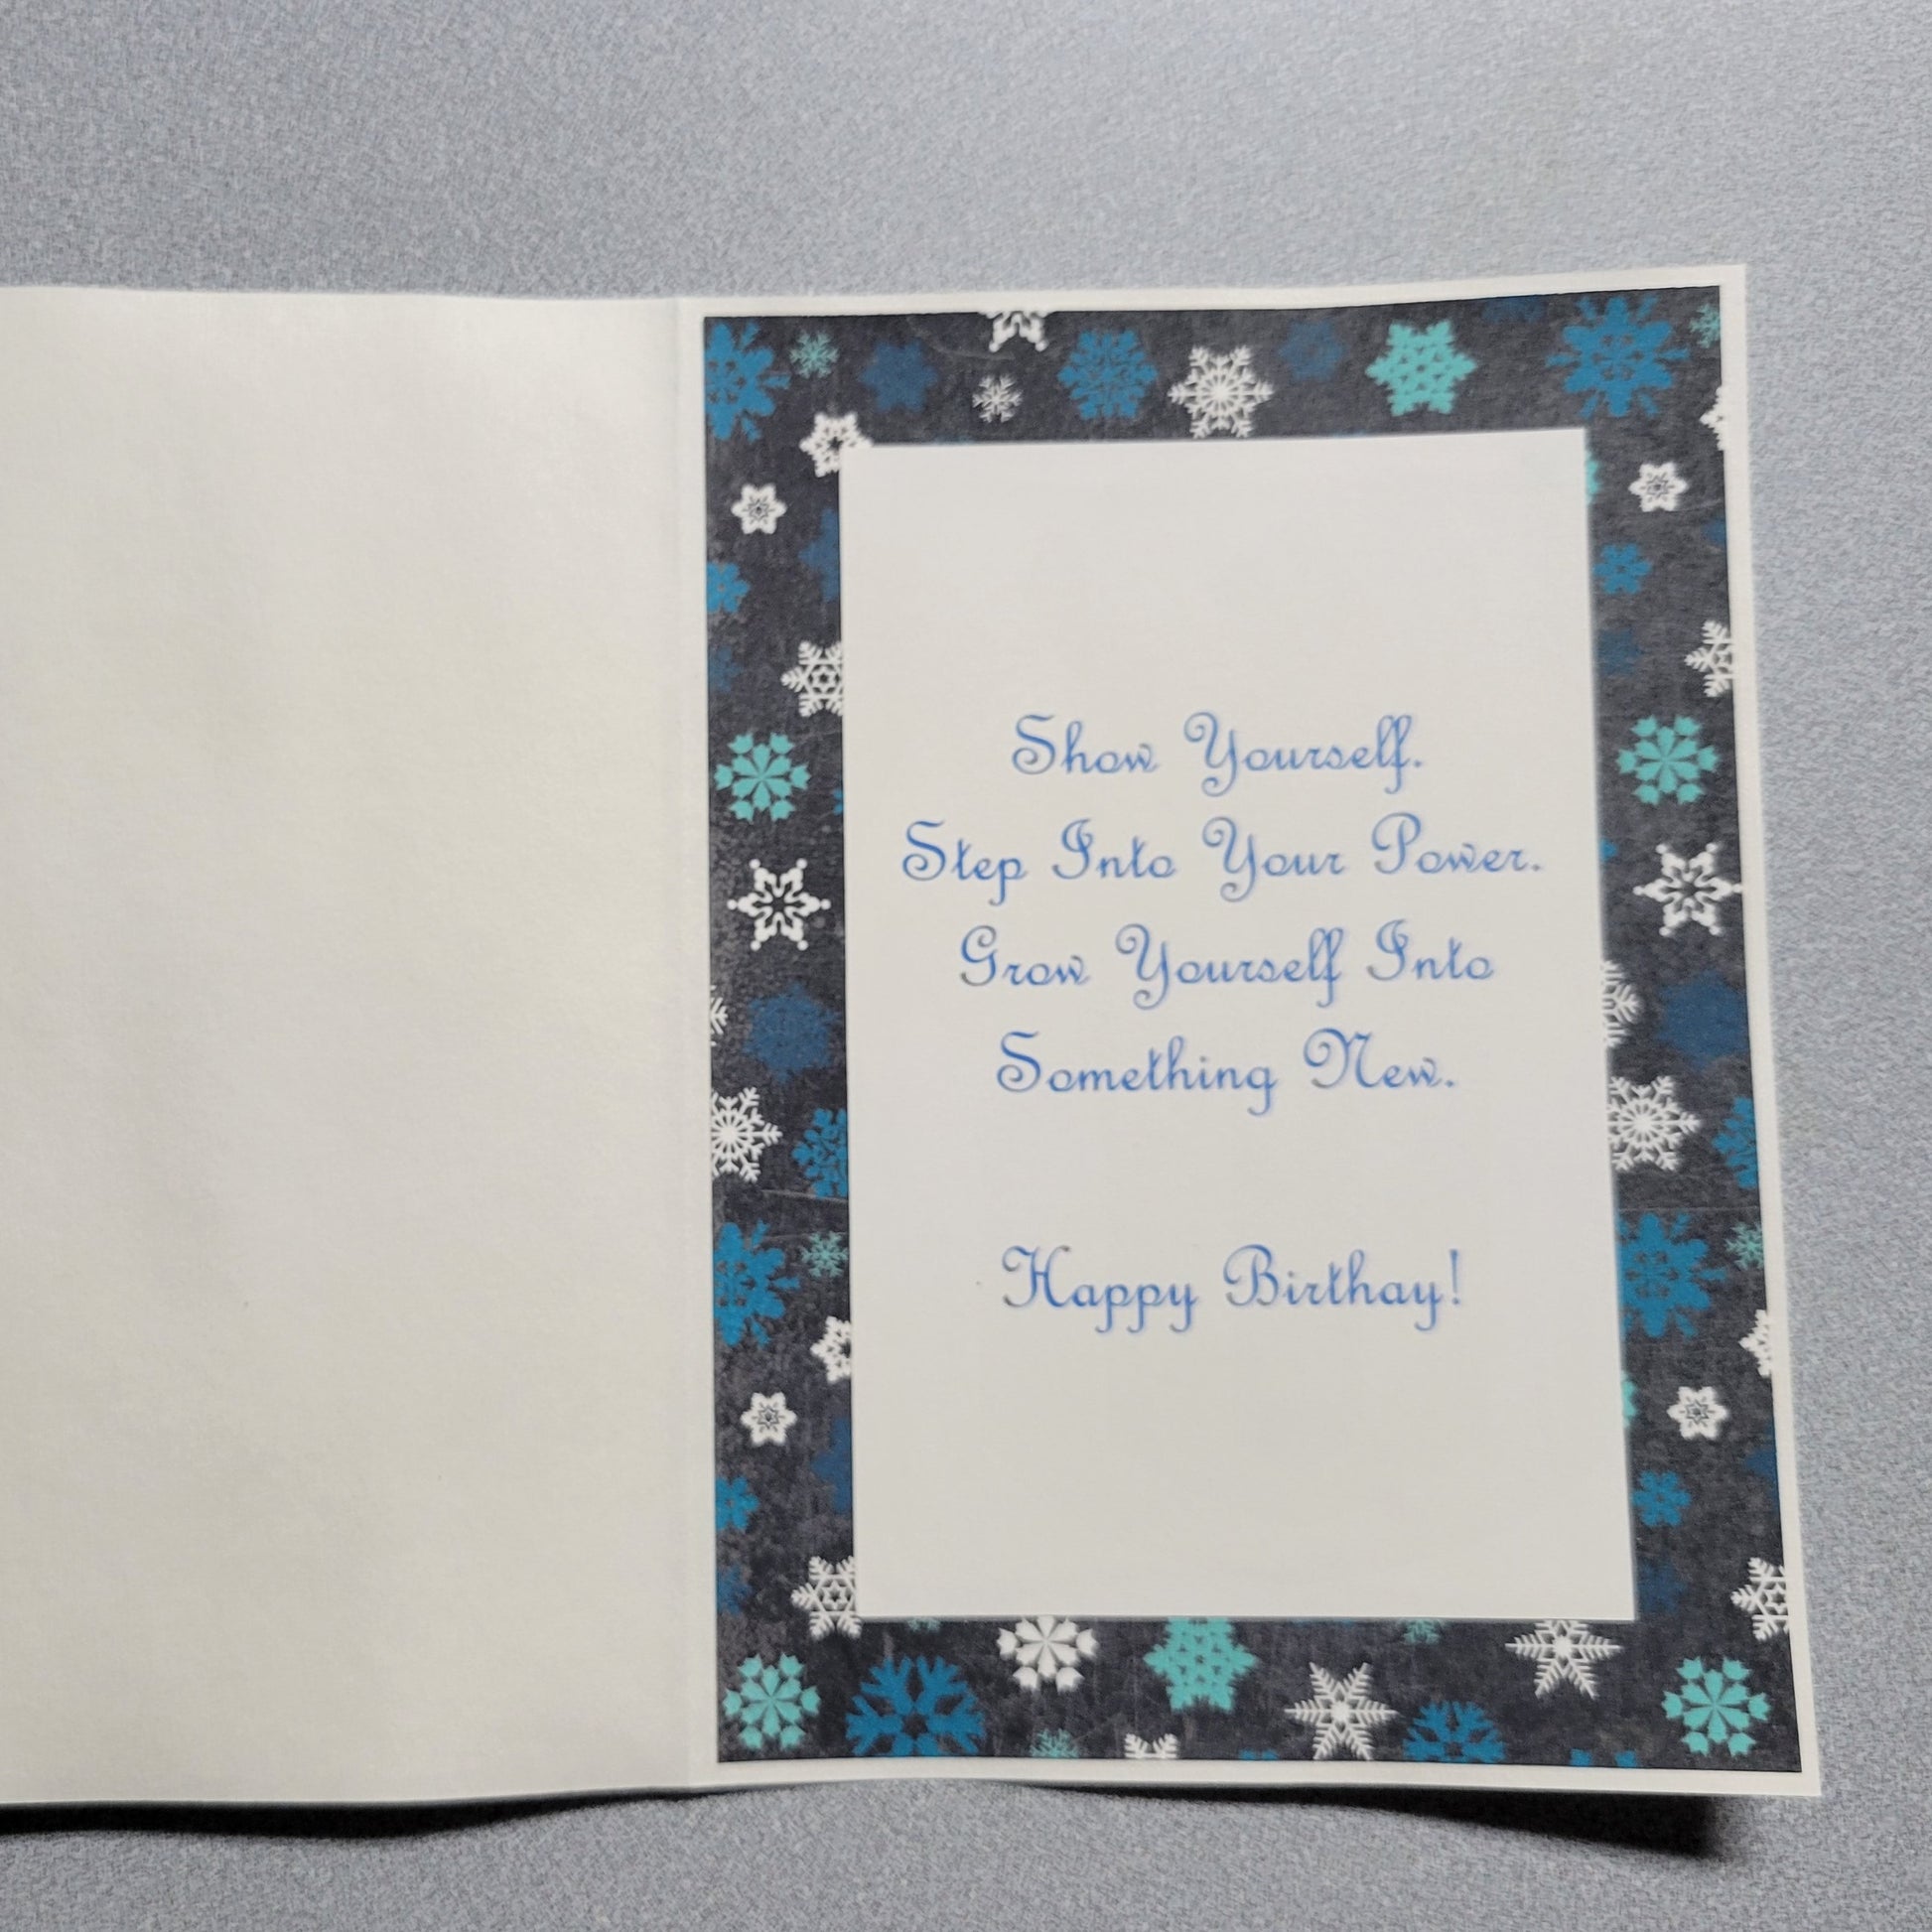 Show Yourself.
Step Into Your Power.
Grow Yourself Into
Something New.
Happy Birthay!